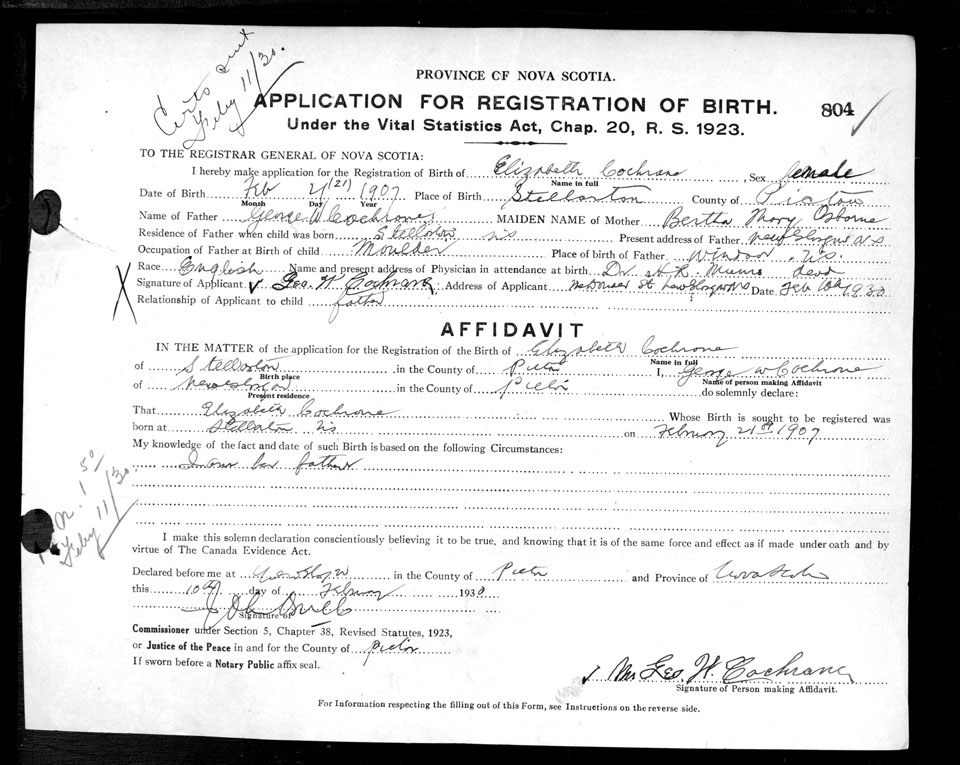 Certs sent
Feby 11/30.
PROVINCE OF NOVA SCOTIA.
APPLICATION FOR REGISTRATION OF BIRTH. 804
Under the Vital Statistics Act, Chap. 20, R. S. 1923.
TO THE REGISTRAR GENERAL OF NOVA SCOTIA:
I hereby make application for the Registration of Birth of Elizabeth Cochrane, Sex female
Name in full
Date of Birth Feb (21) 1907 Place of Birth Stellarton County of Pictou
Month Day Year
Name of Father George W Cochrane MAIDEN NAME of Mother Bertha Mary Osborne
Residence of Father when child was born Stellarton NS Present address of Father New Glasgow N.S
Occupation of Father at Birth of child Moulder Place of birth of Father Windsor N.S.
Race English Name and present address of Physician in attendance at birth Dr. H R. Munro dead
Signature of Applicant Geo. W Cochrane Address of Applicant St New Glasgow NS Date Feb 10th 1930
Relationship of Applicant to child father
AFFIDAVIT
IN THE MATTER of the application for the Registration of the Birth of Elizabeth Cochrane
Name in full
of Stellarton in the County of Pictou I, George W Cochrane
Birth place Name of person making Affidavit
of New Glasgow in the County of Pictou do solemnly declare:
Present residence
That Elizabeth Cochrane Whose Birth is sought to be registered was
born at Stellarton NS on February 21st 1907
My knowledge of the fact and date of such Birth is based on the following Circumstances:
I am her father
1 50
Feby 11/30.
I make this solemn declaration conscientiously believing it to be true, and knowing that it is of the same force and effect as if made under oath and by
virtue of The Canada Evidence Act.
Declared before me at New Glasgow in the County of Pictou and Province of Nova Scotia
this 10th day of February 1930
Signature of
Commissioner under Section 5, Chapter 38, Revised Statutes, 1923,
or Justice of the Peace in and for the County of Pictou
If sworn before a Notary Public affix seal.
Mr Geo. W. Cochrane
Signature of Person making Affidavit.
For Information respecting the filling out of this Form, see Instructions on the reverse side.